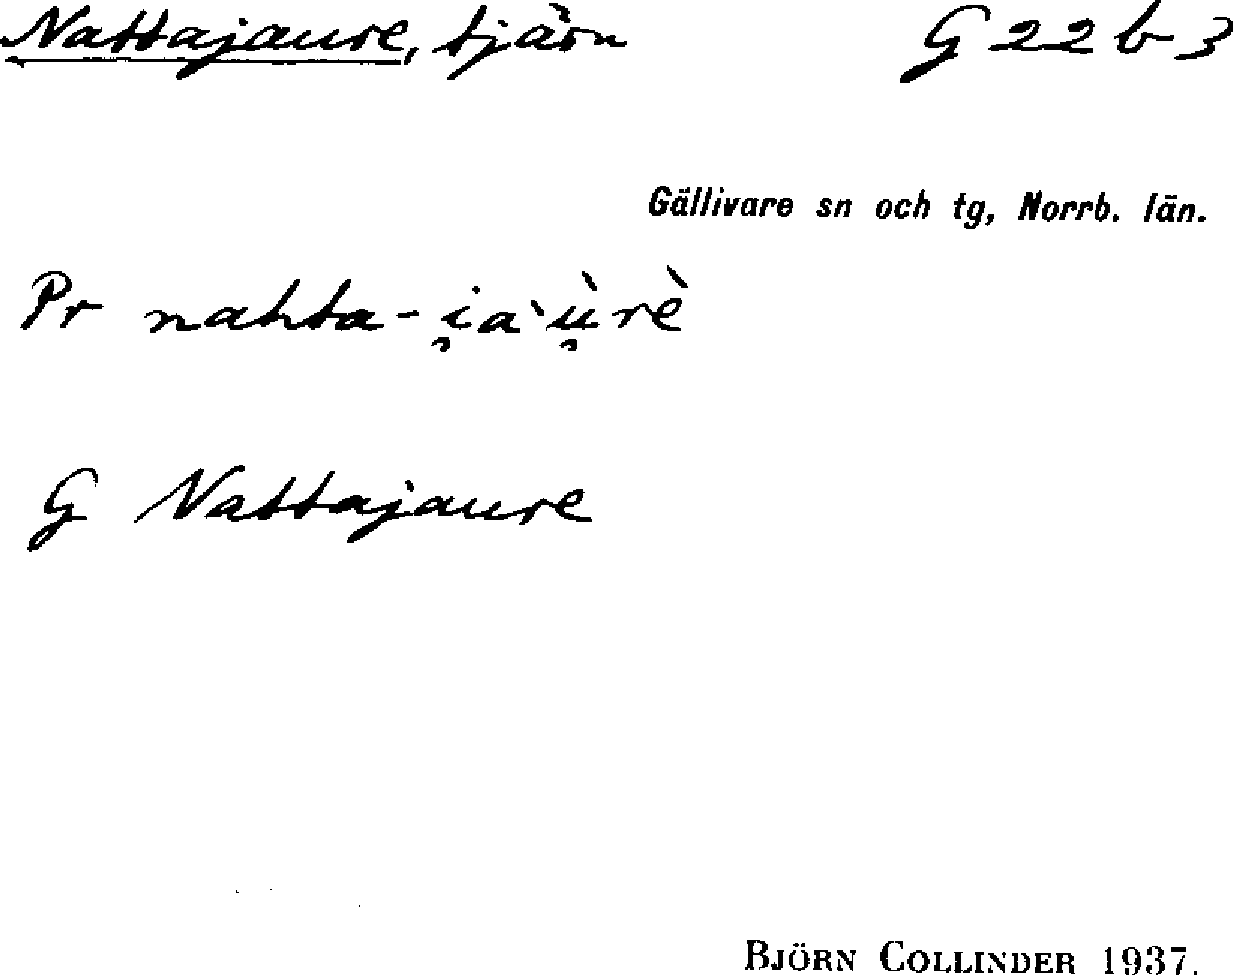 Nattajaure, tjärn G 22 b 3
Gällivare sn och tg, Norrb. län.
Pr nahta-i̯a`ù̯rè
G Nattajaure
BJÖRN COLLINDER 1937.